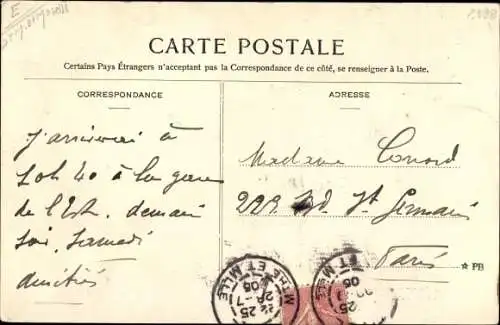 E
CARTE POSTALE
Certains Pays Étrangers n'acceptant pas la Correspondance de ce côté, se renseigner à la Poste.
CORRESPONDANCE
J'arriverai à
10h 40 à la gare
de l'Est. demain
soir, Samedi
amitiés
ADRESSE
Madame Conord
229. Bd. St Germain
Paris
★ PB
ET MILLE
25
-7
05
ET MILLE
25
05